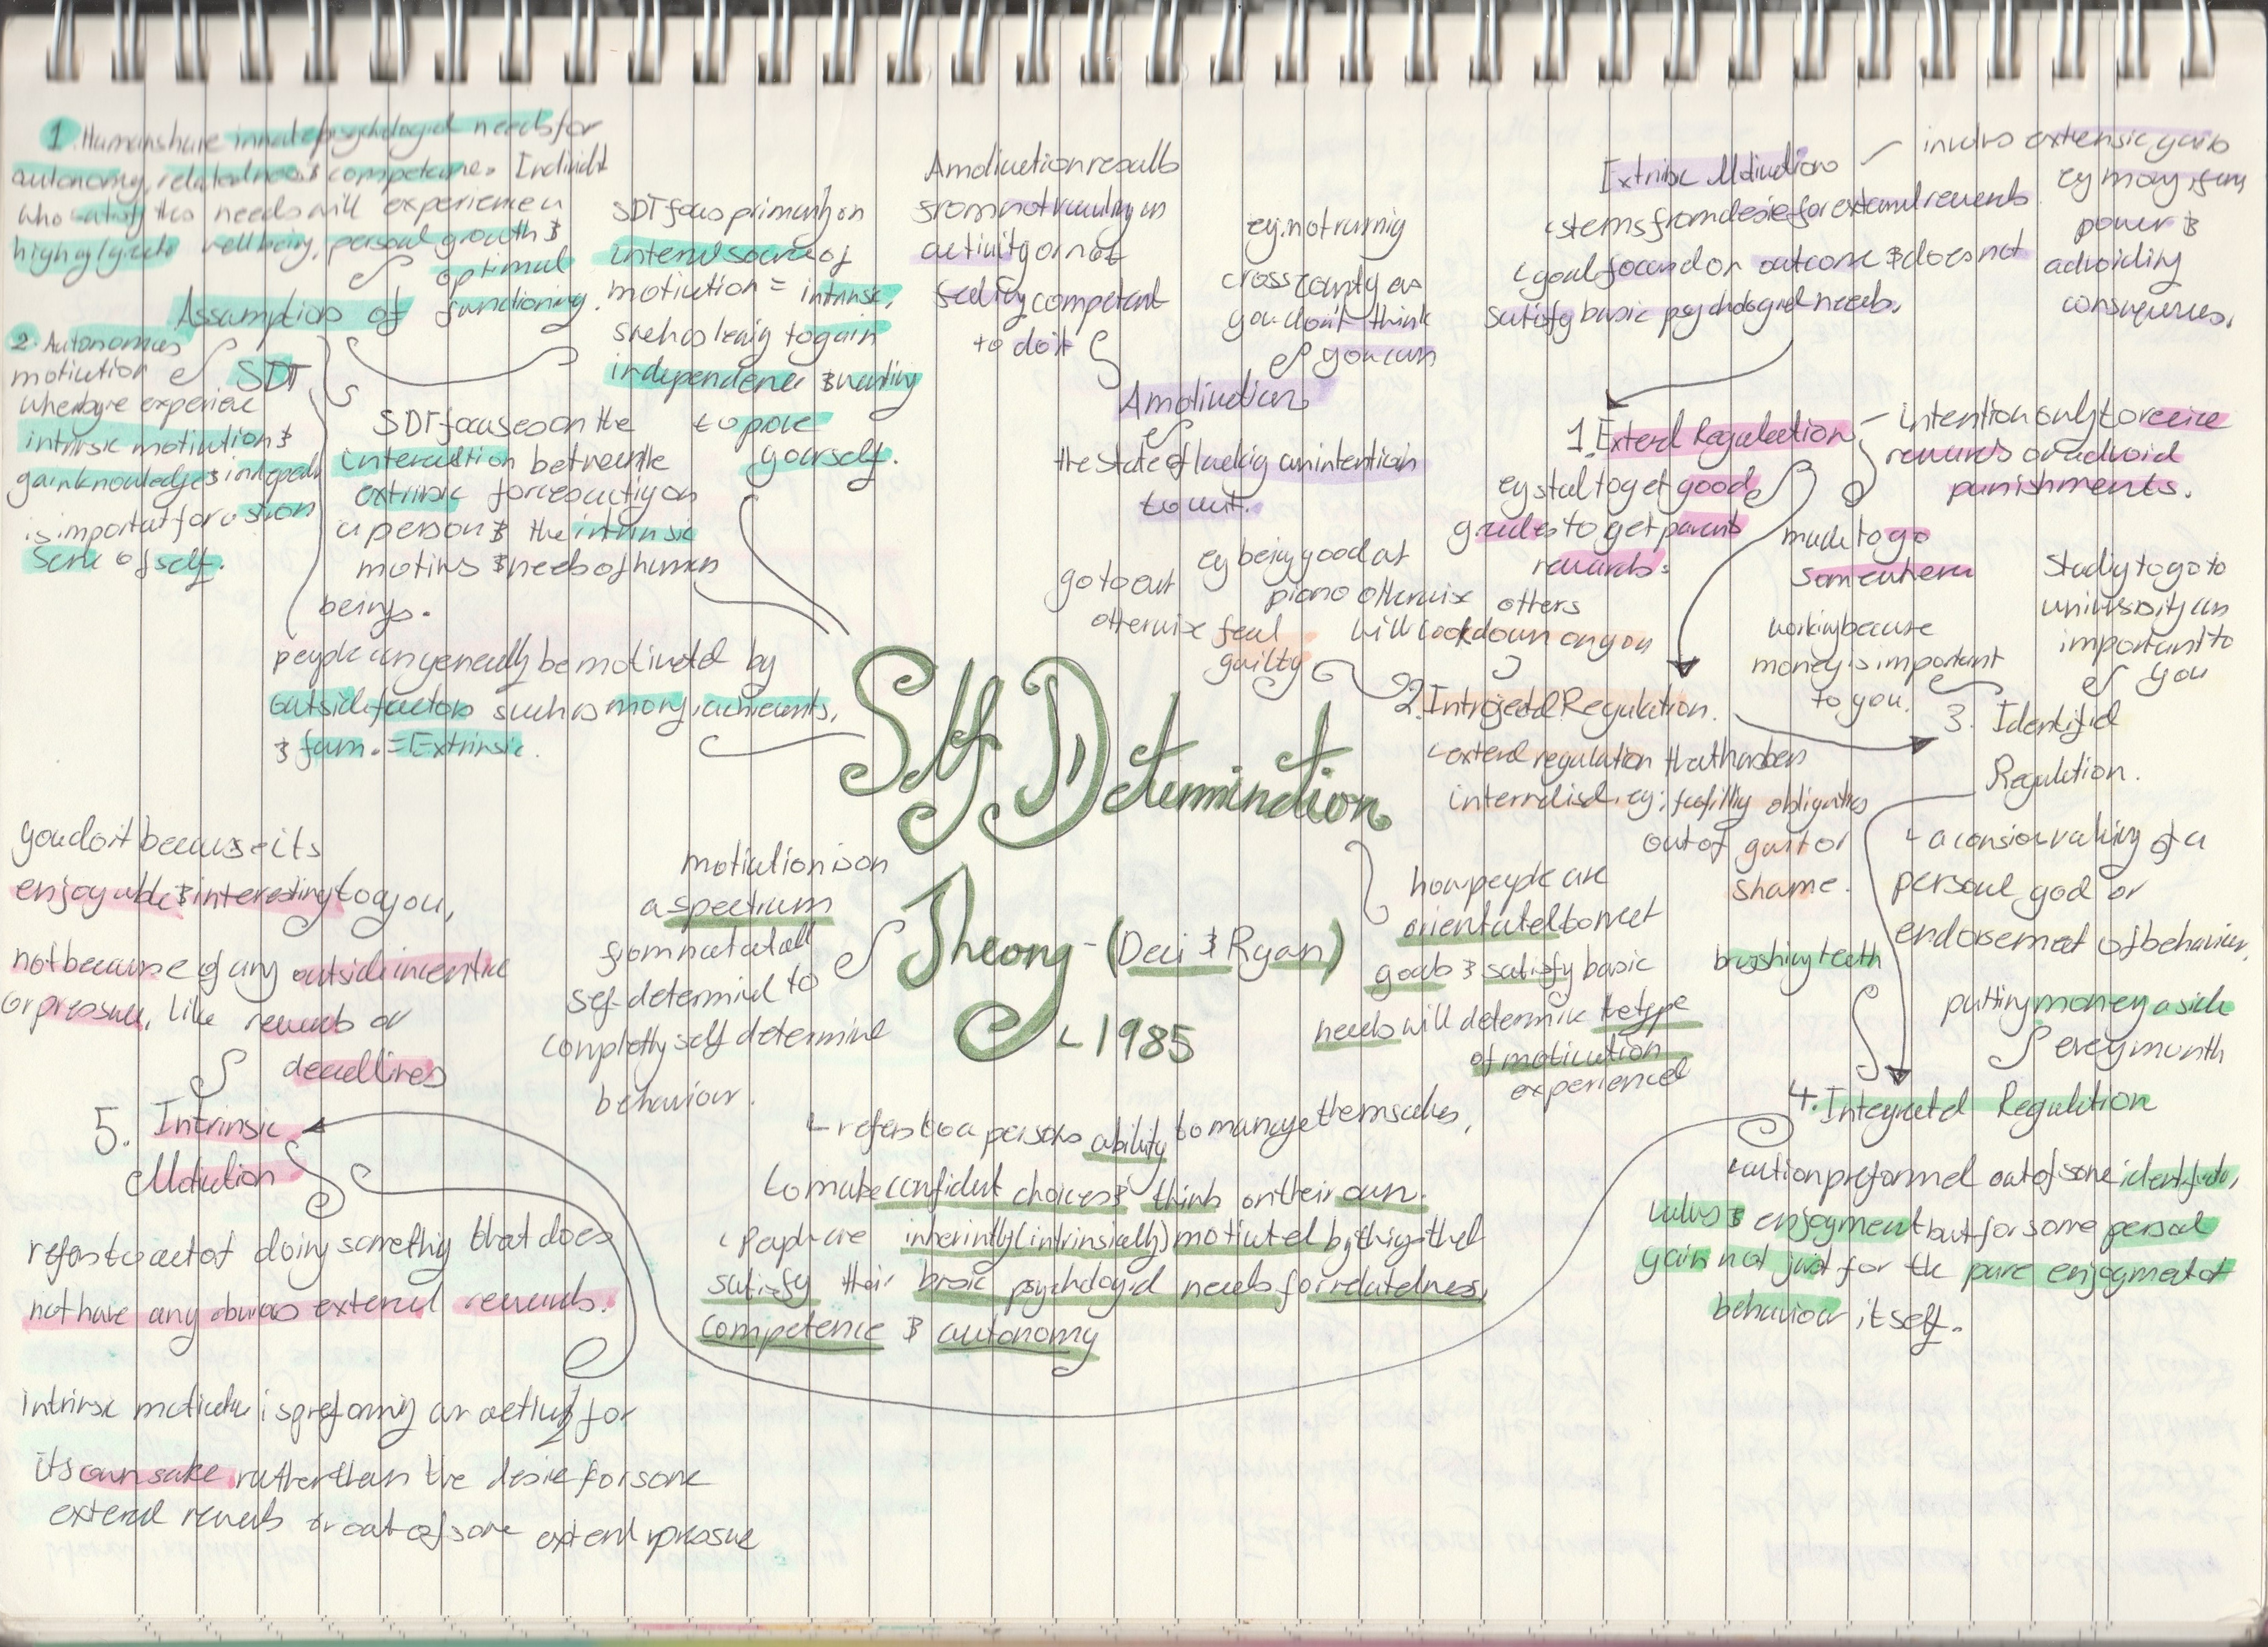 1. Humans have innate psychological needs for
autonomy, relatedness & competence. Individuals
who satisfy this needs will experience a
high og/greate wellbeing, personal growth &
optimal
functioning.
Assumptions of
SDT
2. Autonomous
motivation
whenby're experience
intrinsic motivation &
gain knowledge & indepen
is important for a strong
sense of self.
SDT focus primarily on
internal source of
motivation = intrinsic,
such as leaving to gain
independence & wanting
to prove
yourself.
SDT focuses on the
interaction between the
extrinsic forces acting on
a person & the intrinsic
motives & needs of human
beings.
people can generally be motivated by
outside factors such as money, achievements,
& fam. = Extrinsic.
Amotivation results
from not valuing an
activity or not
feeling competent
to do it
eg. not runnig
cross county as
you don't think
you can
Amotivation
the state of lacking an intention
to act.
Extrinsic Motivation
stems from desire for external rewards
goal focused on outcome & does not
satisfy basic psychological needs.
involves extrensic gains
eg money, fam,
power &
advoiding
consequences.
1. External Regulation
intention only to receive
rewards or advoid
punishments.
eg study to get good
grades to get parents
rewards.
made to go
somewhere
go to out
otherwise feel
guilty
eg being good at
piano otherwise others
will look down on you
2. Introjected Regulation.
external regulation that has been
internalised. eg; fulfilling obligations
out of guilt or
shame.
working because
money is important
to you.
Studying to go to
university as
important to
you
3. Identified
Regulation.
a conscious valuing of a
personal goal or
endorsement of behaviour.
Self Determination
Theory - (Deci & Ryan)
1985
motivation is on
a spectrum
from not at all
self-determined to
completely self determine
behaviour.
how people are
orientated to meet
goals & satisfy basic
needs will determine the type
of motivation
experienced
refers to a persons ability to manage themselves,
to make confident choices & think on their own.
People are inherintly (intrinsically) motivated by things that
satisfy their basic psychological needs for relatedness,
competence & autonomy
brushing teeth
putting money aside
every month
4. Integrated Regulation
action preformed out of some identifyed,
values & enjoyment but for some personal
gain not just for the pure enjoyment of
behaviour itself.
you do it because its
enjoyable & interesting to you,
not because of any outside incentive
or pressure, like rewards or
deadlines
5. Intrinsic
Motivation
refers to act of doing something that does
not have any obvious external rewards.
intrinsic motivation is preforming an activity for
its own sake rather than the desire for some
external rewards or out of some external pressure